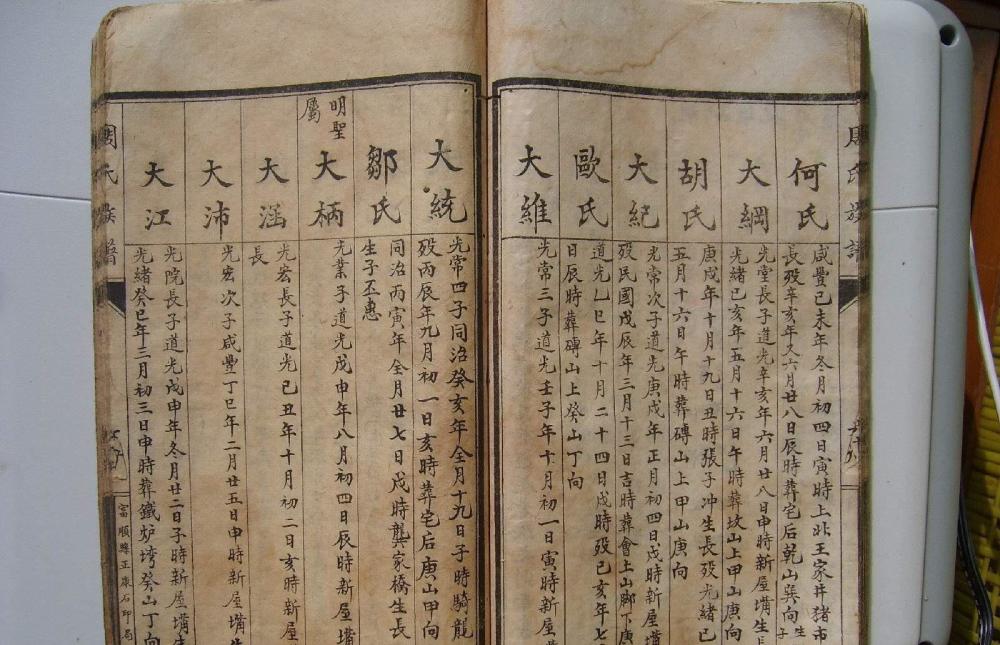 何氏
咸豐己未年冬月初四日寅時上北王家井猪市
長歿辛亥年又六月廿八日辰時葬宅后乾山巽向生子
大綱
光堂長子道光辛亥年六月廿八日申時新屋塆生長
光緒己亥年五月十六日午時葬坟山上甲山庚向
胡氏
庚戌年十月十九日丑時張子冲生長歿光緒己
五月十六日午時葬磚山上甲山庚向
大紀
光常次子道光庚戌年正月初四日戌時新屋塆
歿民國戊辰年三月十三日吉時葬會上山脚下庚
歐氏
道光乙巳年十月二十四日戌時歿己亥年七
日辰時葬磚山上癸山丁向
大維
光常三子道光壬子年十月初一日寅時新屋
大統
光常四子同治癸亥年全月十九日子時騎龍
歿丙辰年九月初一日亥時葬宅后庚山甲向
鄒氏
同治丙寅年全月廿七日戌時龔家橋生長
生子丕惠
明聖
屬
大柄
光業子道光戊申年八月初四日辰時新屋塆
大涵
光宏長子道光己丑年十月初二日亥時新屋
長
大沛
光宏次子咸豐丁巳年二月廿五日申時新屋塆生
大江
光院長子道光戊申年冬月廿二日子時新屋塆生
光緒癸巳年三月初三日申時葬鐵炉塆癸山丁向
周氏族譜
富順縣正康石印局